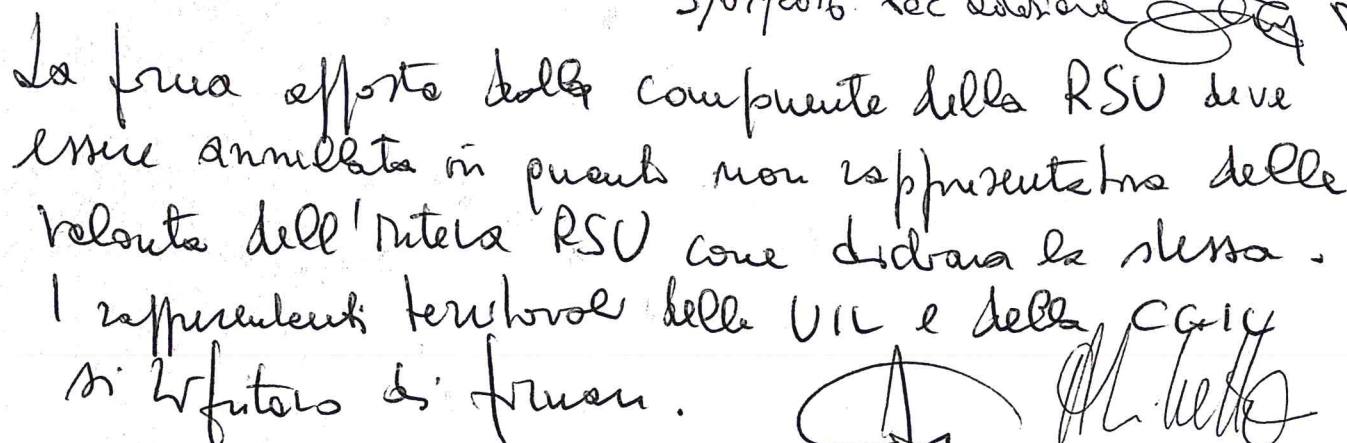 5/07/2016 per adesione
La firma apposta dalla componente della RSU deve
essere annullata in quanto non rappresentativa della
volontà dell'intera RSU come dichiara la stessa.
I rappresentanti territoriali della UIL e della CGIL
si rifiutano di firmare.